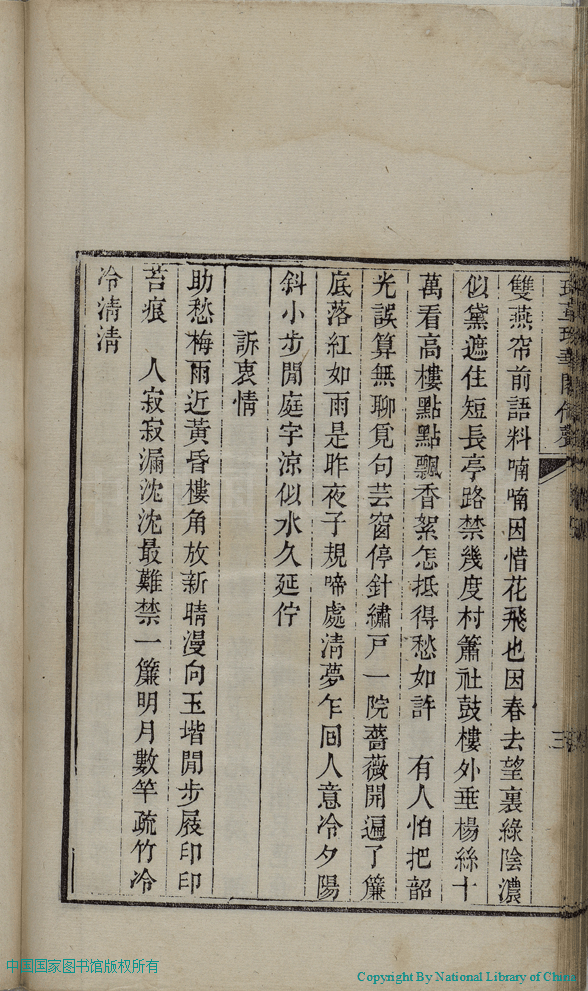 雙燕帘前語料喃喃因惜花飛也因春去望裏綠陰濃
似黛遮住短長亭路禁幾度村簫社鼓樓外垂楊絲十
萬看高樓點點飄香絮怎抵得愁如許　有人怕把韶
光誤算無聊覓句芸窗停針繡戸一院薔薇開遍了簾
底落紅如雨是昨夜子規啼處清夢乍回人意冷夕陽
斜小步閒庭宇涼似水久延佇
訴衷情
助愁梅雨近黃昏樓角放新晴漫向玉堦閒步屐印印
苔痕　人寂寂漏沈沈最難禁一簾明月數竿疏竹冷
冷清清
中国国家图书馆版权所有
Copyright By National Library of China